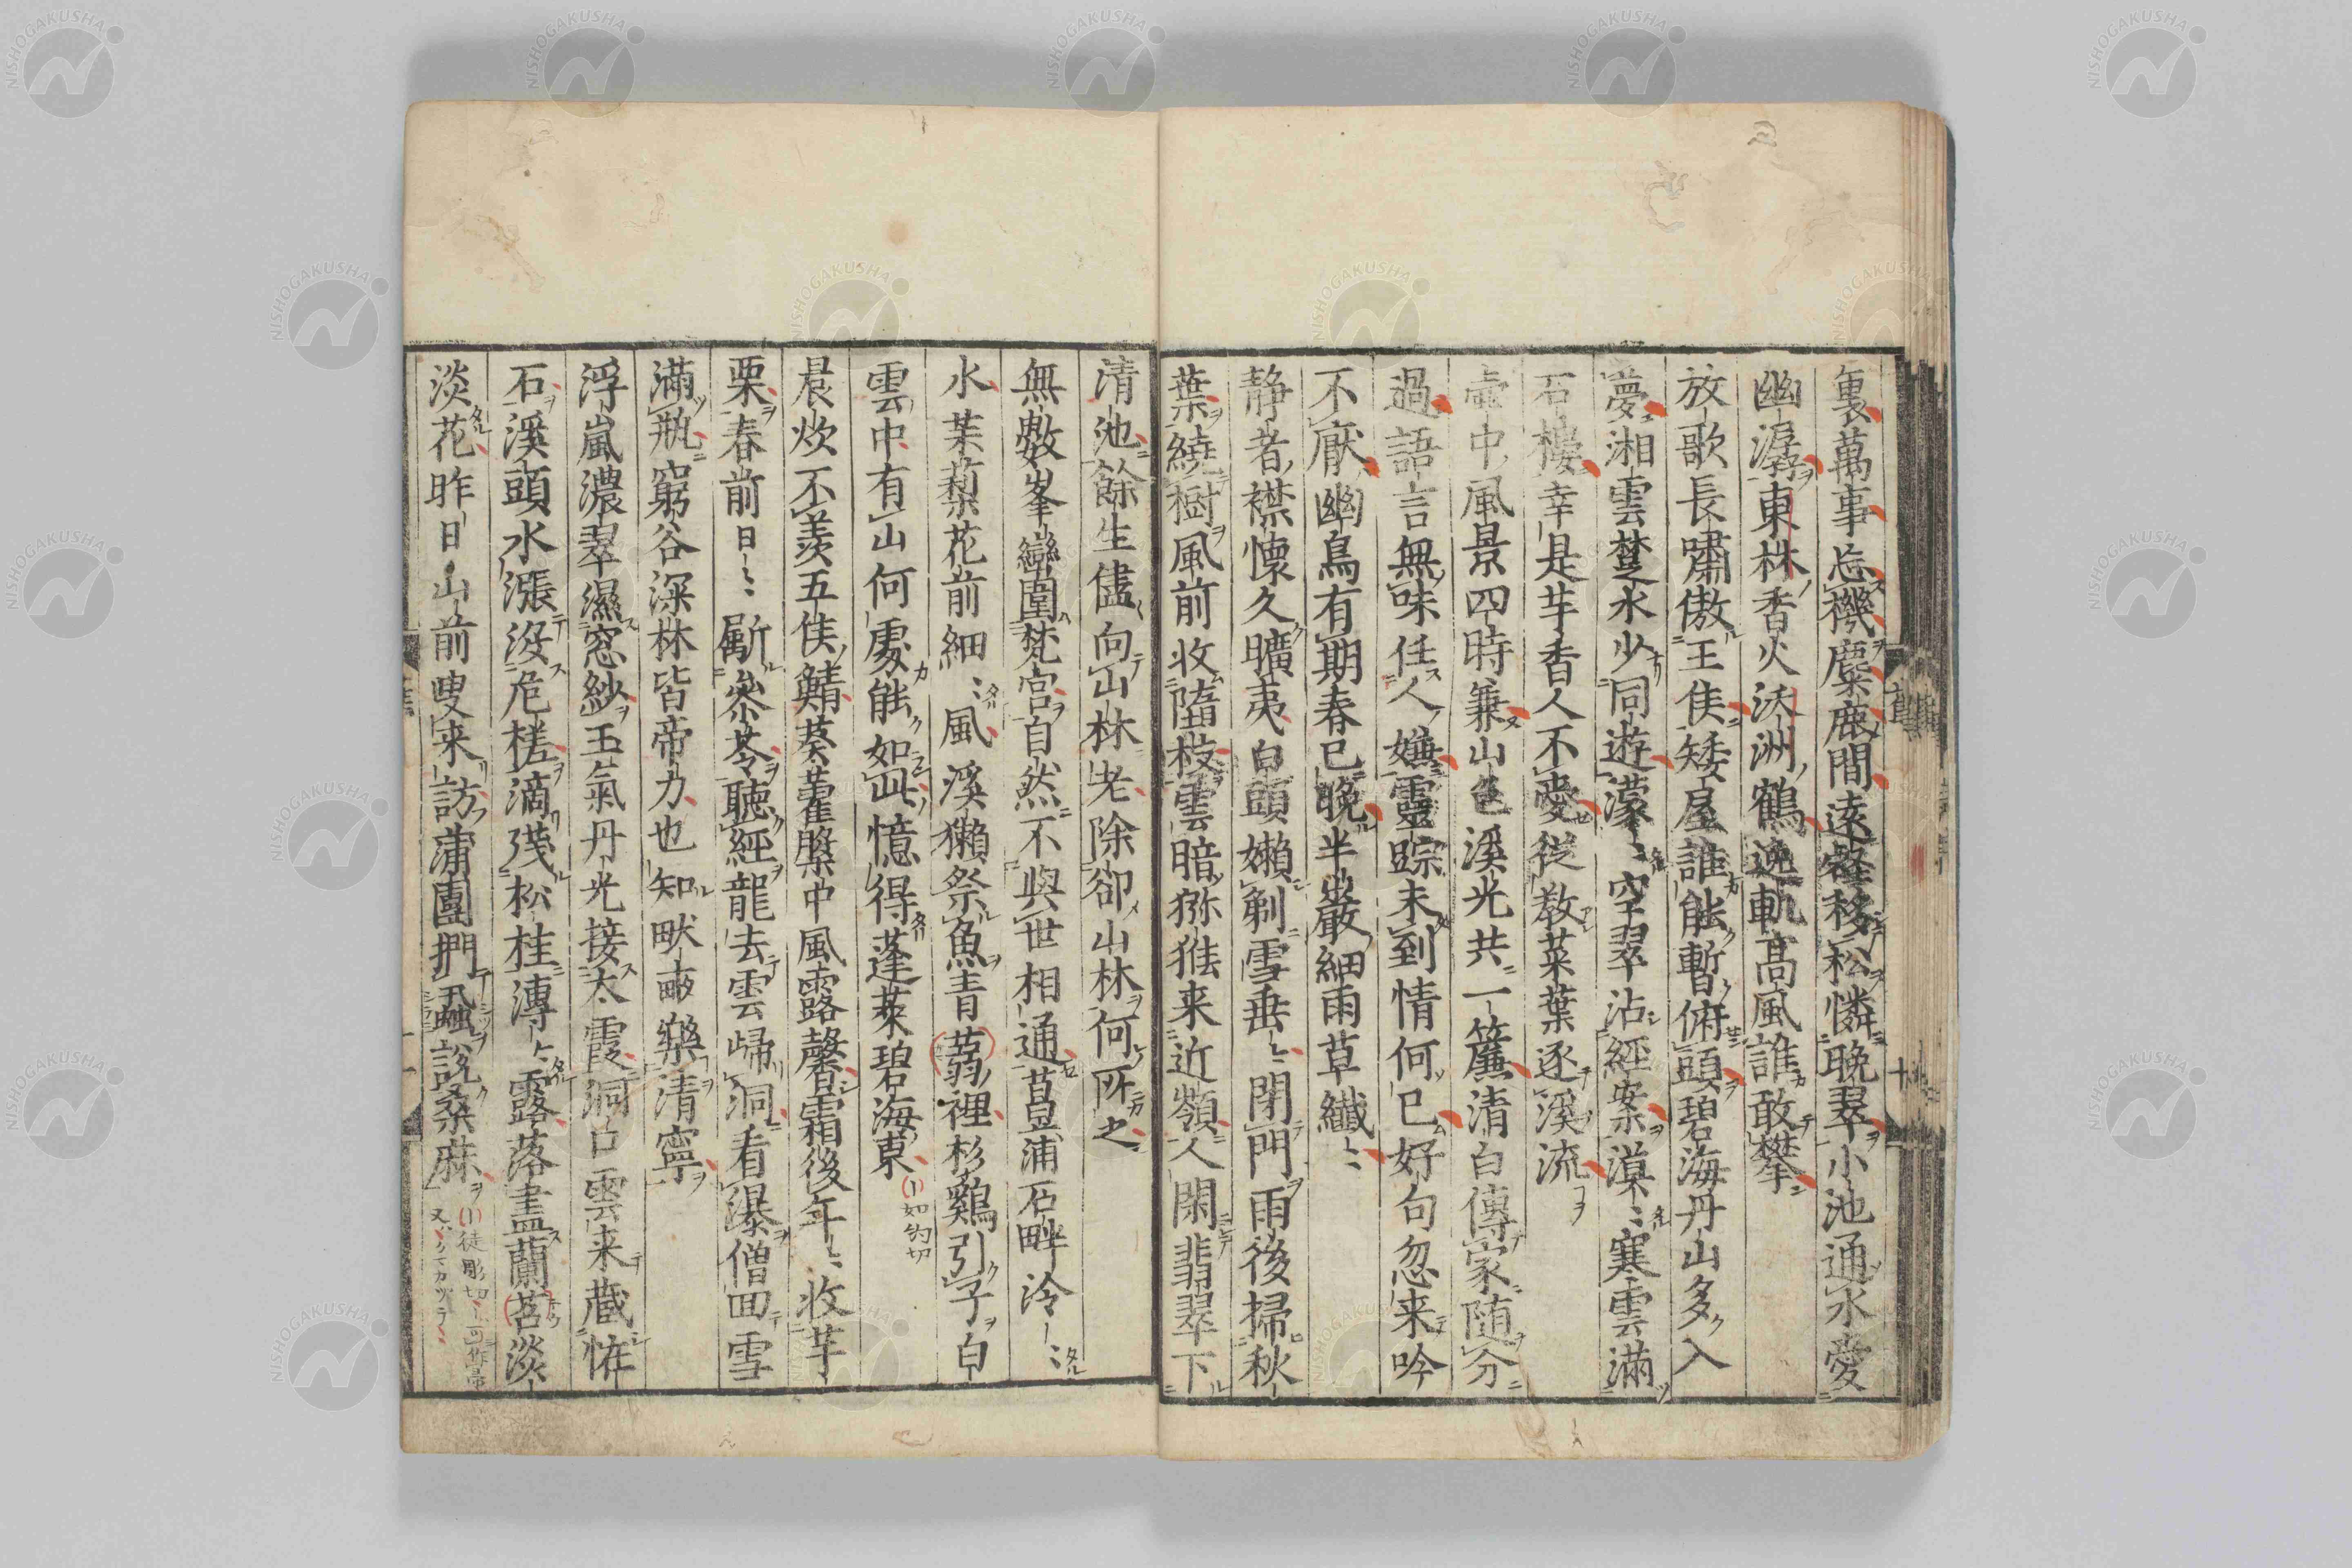 裏萬事忘機麋鹿間遠壑移松憐晩翠小池通水愛
幽潺東林香火沃洲鶴逸軌高風誰敢攀
放歌長嘯傲王侯矮屋誰能暫俯頭碧海丹山多入
夢湘雲楚水少同遊濛〻空翠沾經案漠〻寒雲滿
石樓幸是芋香人不愛從教菜葉逐溪流
壷中風景四時兼山色溪光共一簾清白傳家随分
過語言無味任人嫌靈踪未到情何已好句忽来吟
不厭幽鳥有期春已晩半巖細雨草纖〻
静者襟懷久曠夷白頭嬾剃雪垂〻閉門雨後掃秋
葉繞樹風前收墮枝雲暗猕猴来近嶺人閑翡翠下
清池餘生儘向山林老除卻山林何所之
無數峯巒圍梵宫自然不與世相通菖蒲石畔泠〻
水茱蔾花前細〻風溪獺祭魚青蒻裡杉鷄引子白
雲中有山何處能如此憶得蓬萊碧海東 如灼切
晨炊不羡五侯鯖葵藿槃中風露馨霜後年〻收芋
栗春前日〻斸參苓聽經龍去雲歸洞看瀑僧回雪
滿瓶窮谷深林皆帝力也知畎畝樂清寧
浮嵐濃翠濕窓紗玉氣丹光接太霞洞口雲来藏恠
石溪頭水漲没危槎滴殘松桂漙〻露落盡蘭苕淡
淡花昨日山前叟来訪蒲團捫蝨說桑麻 徒彫切